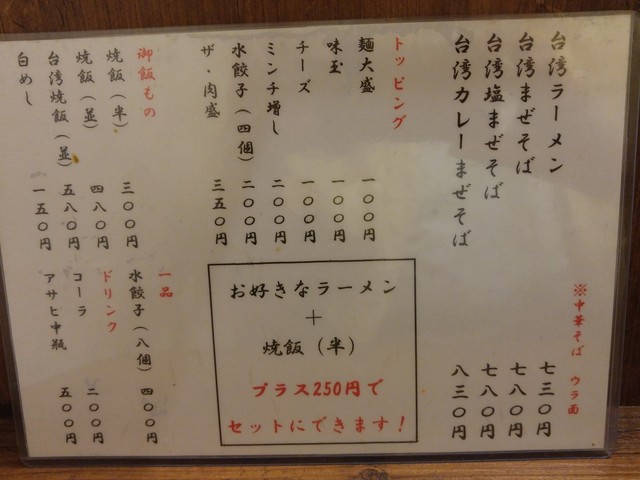 台湾ラーメン 七三〇円
台湾まぜそば 七八〇円
台湾塩まぜそば 七八〇円
台湾カレーまぜそば 八三〇円
※中華そば ウラ面
トッピング
麺大盛 一〇〇円
味玉 一〇〇円
チーズ 一〇〇円
ミンチ増し 二〇〇円
水餃子（四個） 二〇〇円
ザ・肉盛 三五〇円
御飯もの
焼飯（半） 三〇〇円
焼飯（並） 四八〇円
台湾焼飯（並） 五八〇円
白めし 一五〇円
一品
水餃子（八個） 四〇〇円
ドリンク
コーラ 二〇〇円
アサヒ中瓶 五〇〇円
お好きなラーメン
＋
焼飯（半）
プラス250円で
セットにできます！